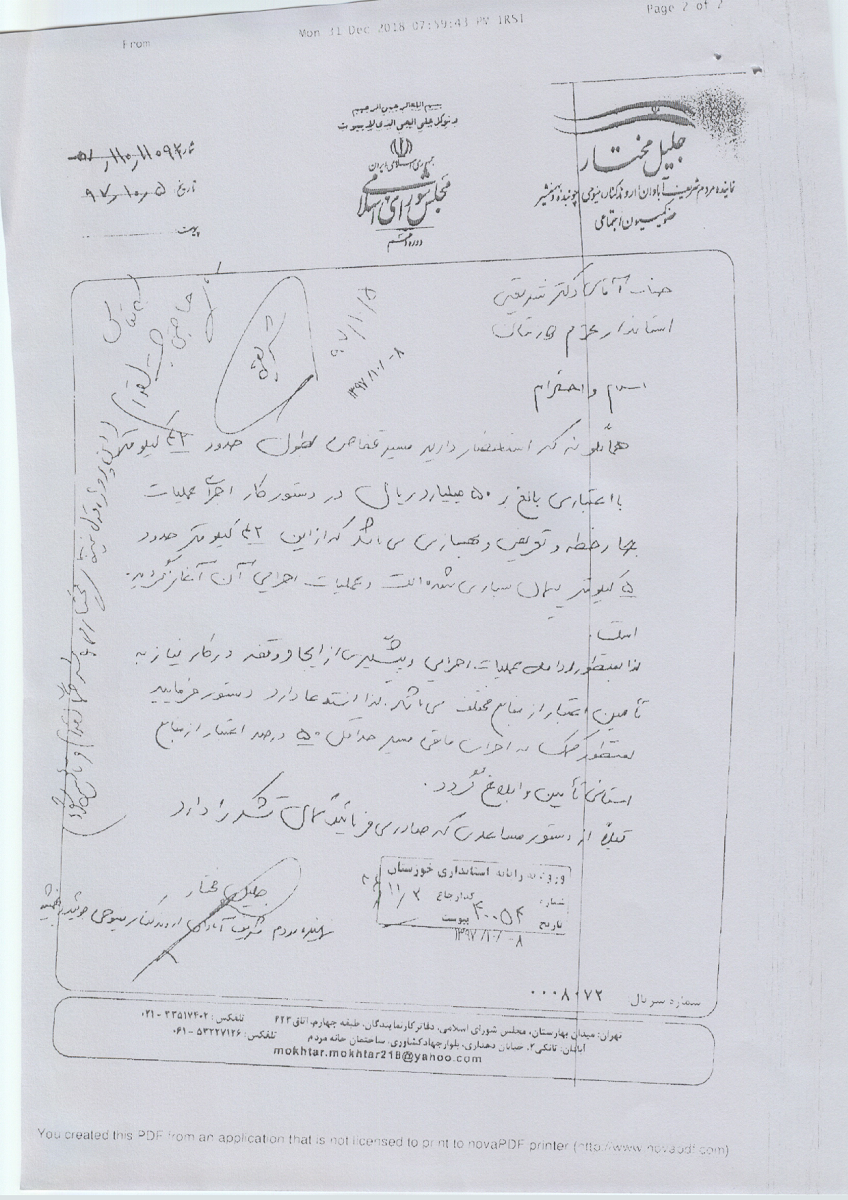 From
Mon 31 Dec 2018 07:59:43 PM IRST
Page 2 of 2
بسم الله الرحمن الرحیم
و توکل علی الحی الذی لایموت
جمهوری اسلامی ایران
مجلس شورای اسلامی
دوره دهم
جلیل مختار
نماینده مردم شریف آبادان، اروندکنار، مینوحی، چوئبده و بهمنشیر
عضو کمیسیون اجتماعی
شماره
تاریخ ۹۷/۱۰/۵
پیوست
جناب آقای دکتر شریعتی
استاندار محترم خوزستان
سلام و احترام
همانگونه که استحضار دارید مسیر خضر بطول حدود ۴۲ کیلومتر
با اعتباری بالغ بر ۵۰ میلیارد ریال در دستور کار اجرای عملیات
چهارخطه و تعریض و بهسازی می باشد که از این ۴۲ کیلومتر حدود
۵ کیلومتر پیمان سپاری شده است و عملیات اجرایی آن آغاز گردیده
است.
لذا بمنظور ادامه عملیات اجرایی و پیشگیری از ایجاد وقفه در کار نیاز به
تأمین اعتبار از منابع مختلف می باشد. لذا استدعا دارد دستور فرمایید
بمنظور کمک به اجرای مابقی مسیر حداقل ۵۰ درصد اعتبار از منابع
استانی تأمین و ابلاغ گردد.
قبلاً از دستور مساعدی که صادر می فرمائید کمال تشکر را دارد
جلیل مختار
نماینده مردم شریف آبادان اروندکنار مینوحی چوئبده بهمنشیر
شریعتی
۱۳۹۷/۱۰/۰۸
ورود به رایانه استانداری خوزستان
شماره: ۴۰۰۵۴
کدارجاع ۱۱/۲
تاریخ ۱۳۹۷/۱۰/۰۸
پیوست
شماره سریال ۰۰۰۸۰۷۲
تهران: میدان بهارستان، مجلس شورای اسلامی، دفاتر کار نمایندگان، طبقه چهارم، اتاق ۴۲۳ تلفکس: ۳۳۵۱۷۴۰۲-۰۲۱
آبادان: تانکی۲، خیابان دهداری، بلوار جهاد کشاورزی، ساختمان خانه مردم تلفکس: ۵۳۲۲۷۱۲۶-۰۶۱
mokhtar.mokhtar218@yahoo.com
You created this PDF from an application that is not licensed to print to novaPDF printer (http://www.novapdf.com)